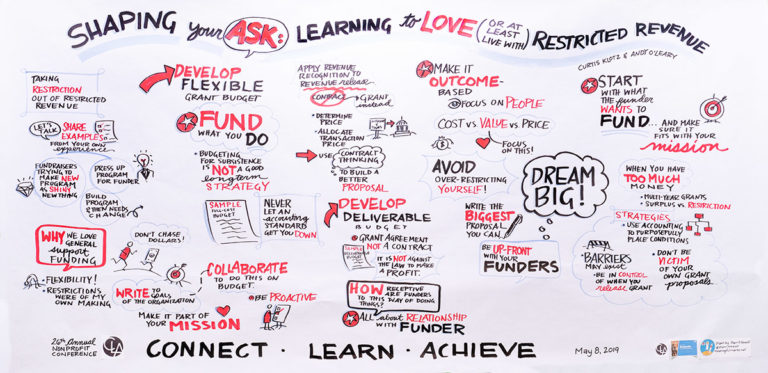 SHAPING your ASK: LEARNING to LOVE (OR AT LEAST LIVE WITH) RESTRICTED REVENUE
CURTIS KLOTZ AND ANDY O'LEARY
TAKING
RESTRICTION
OUT OF RESTRICTED
REVENUE
LET'S TALK
SHARE
EXAMPLES
FROM YOUR OWN
experience
FUNDRAISERS
TRYING TO
MAKE NEW
PROGRAM
AS SHINY
NEW THING
DRESS UP
PROGRAM
FOR FUNDER
BUILD
PROGRAM
& THEN NEEDS
CHANGE
WHY WE LOVE
GENERAL
support
FUNDING
• FLEXIBILITY!
• RESTRICTIONS
WERE OF MY
OWN MAKING
DON'T CHASE
DOLLARS!
WRITE TO GOALS
OF THE ORGANIZATION
MAKE IT PART OF
YOUR MISSION
DEVELOP
FLEXIBLE
GRANT BUDGET
FUND
WHAT YOU
DO
• BUDGETING
FOR SUBSISTENCE
IS NOT A GOOD
longterm
STRATEGY
SAMPLE
FULL-COST
BUDGET
NEVER
LET AN
accounting
STANDARD
GET YOU DOWN
COLLABORATE
TO DO THIS ON
BUDGET
• BE PROACTIVE
APPLY REVENUE
RECOGNITION TO
REVENUE release
CONTRACT → GRANT
instead
• DETERMINE
PRICE
• ALLOCATE
TRANSACTION
PRICE
→ USE CONTRACT
THINKING
TO BUILD A
BETTER
PROPOSAL
DEVELOP
DELIVERABLE
BUDGET
GRANT AGREEMENT
NOT A CONTRACT
IT IS NOT AGAINST
THE LAW TO MAKE A
PROFIT.
HOW RECEPTIVE
ARE FUNDERS
TO THIS WAY OF DOING
THINGS?
All about RELATIONSHIP
WITH FUNDER
MAKE IT
OUTCOME-
BASED
FOCUS ON PEOPLE
COST vs VALUE vs PRICE
FOCUS ON
THIS!
AVOID
OVER-RESTRICTING
YOURSELF!
WRITE THE
BIGGEST
PROPOSAL
YOU CAN
BE UP-FRONT
WITH YOUR
FUNDERS
DREAM
BIG!
START
WITH WHAT
the funder
WANTS TO
FUND... AND MAKE
SURE IT
FITS WITH YOUR
mission
WHEN YOU HAVE
TOO MUCH
MONEY
• MULTI-YEAR GRANTS
• SURPLUS vs RESTRICTION
STRATEGIES
• USE ACCOUNTING
TO PURPOSEFULLY
PLACE CONDITIONS
• BARRIERS
MAY exist
• BE IN CONTROL
OF WHEN YOU
release GRANT
• DON'T BE
VICTIM
OF YOUR
OWN GRANT
proposals.
26th Annual
NONPROFIT
CONFERENCE
CLA
CONNECT · LEARN · ACHIEVE
May 8, 2019
CLA